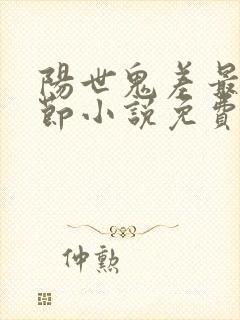 陽世鬼差最
節小說免費
仲勲